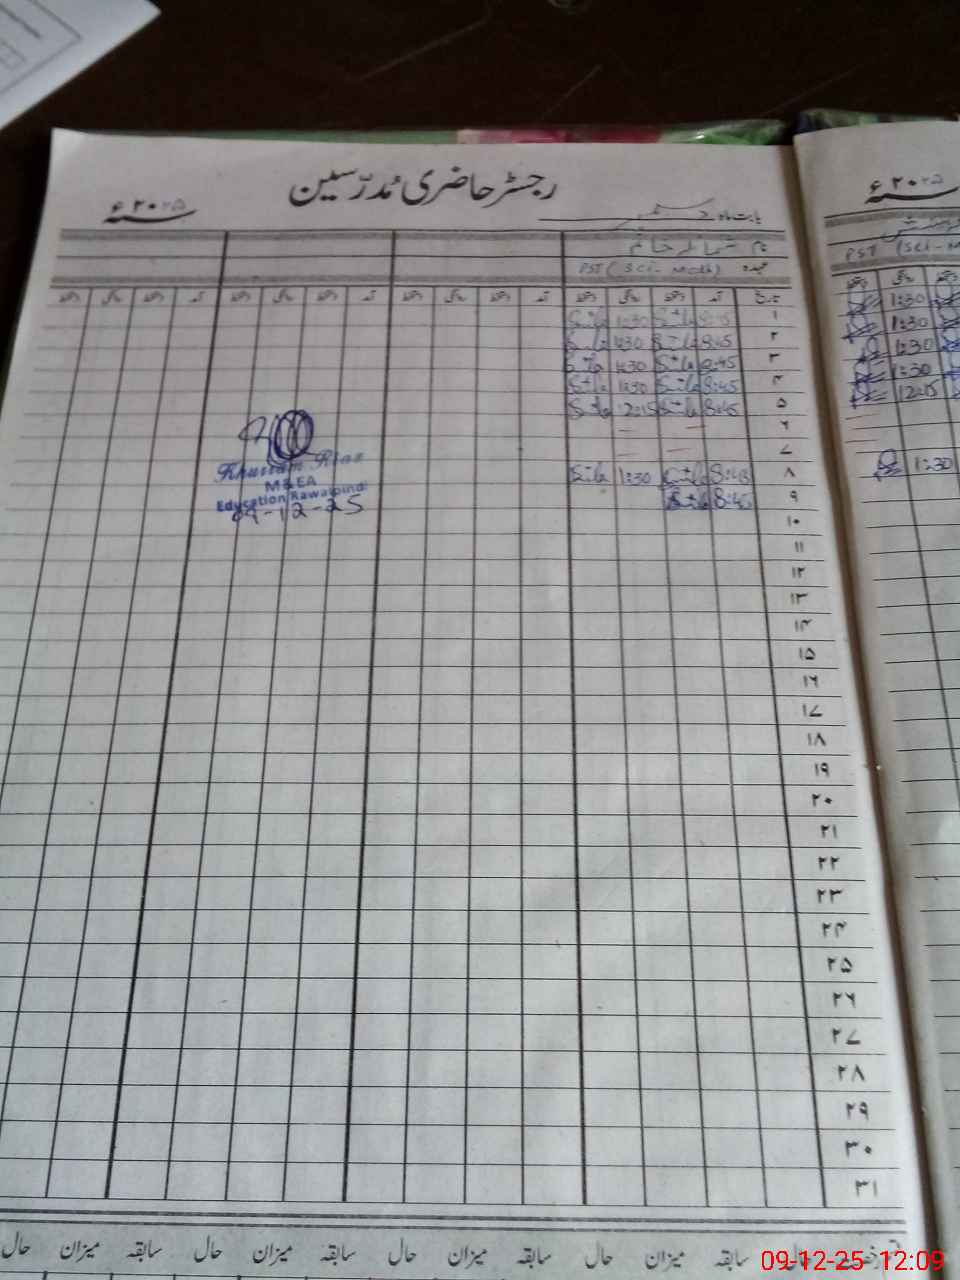 رجسٹر حاضری مُدرّسین
بابت ماہ دسمبر سنہ ۲۰۲۵ء
نام شمائلہ خانم
عہدہ PST (Sci - Math)
تاریخ آمد دستخط روانگی دستخط آمد دستخط روانگی دستخط آمد دستخط روانگی دستخط آمد دستخط روانگی دستخط
۱ 8:45 1:30
۲ 8:45 1:30
۳ 8:45 1:30
۴ 8:45 1:30
۵ 8:45 12:15
۶ — —
۷ — —
۸ 8:45 1:30
۹ 8:45
۱۰
۱۱
۱۲
۱۳
۱۴
۱۵
۱۶
۱۷
۱۸
۱۹
۲۰
۲۱
۲۲
۲۳
۲۴
۲۵
۲۶
۲۷
۲۸
۲۹
۳۰
۳۱
حال سابقہ میزان حال سابقہ میزان حال سابقہ میزان حال سابقہ میزان حال
Khurram Riaz
M&EA
Education Rawalpindi
09-12-25
سنہ ۲۰۲۵ء
PST (Sci - M
روانگی دستخط
1:30
1:30
1:30
1:30
12:15
1:30
09-12-25 12:09